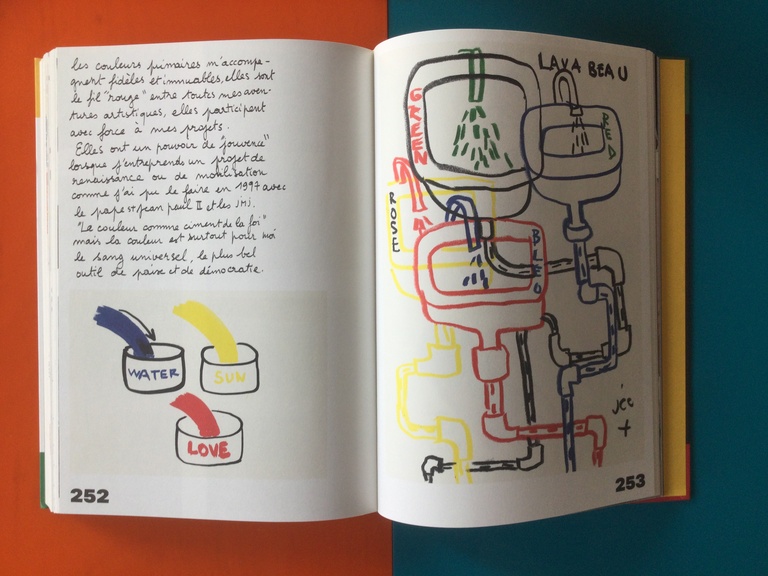 les couleurs primaires m'accompa-
gnent fidèles et immuables, elles sont
le fil "rouge" entre toutes mes aven-
tures artistiques, elles participent
avec force à mes projets.
Elles ont un pouvoir de "jouvence"
lorsque j'entreprends un projet de
renaissance ou de mobilisation
comme j'ai pu le faire en 1997 avec
le pape st Jean Paul II et les JMJ.
"La couleur comme ciment de la foi"
mais la couleur est surtout pour moi
le sang universel, le plus bel
outil de paix et de démocratie.
WATER
SUN
LOVE
252
LAVABEAU
GREEN
RED
ROSE
BLEU
jcc
+
253